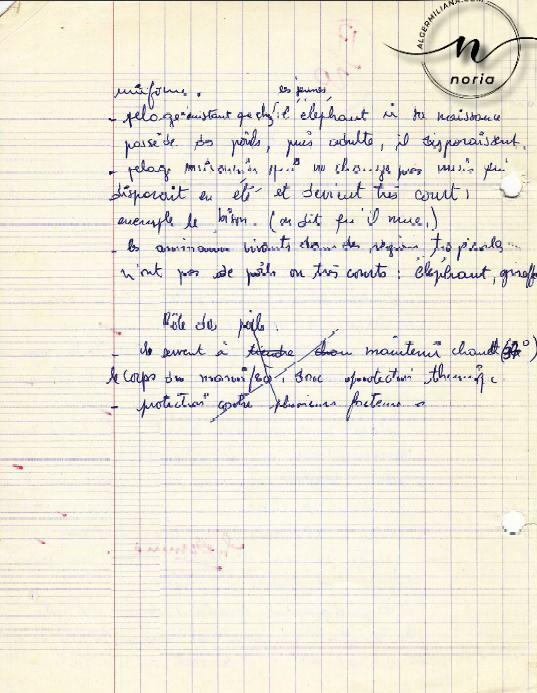 ALGERMILIANA.COM
n
noria
uniforme.
les jeunes
- pelage existant que chez: l'éléphant à sa naissance
possède des poils, puis adulte, il disparaissent.
- pelage qui ne change pas mais qui
disparait en été et devient très court,
exemple le bison. (on dit qu'il mue.)
- les animaux vivants dans des régions tropicales
n'ont pas de poils ou très courts: éléphant, giraffe
Rôle des poils.
- ils servent à maintenir chaud (37°)
le corps du, donc protection thermique
- protection contre plusieurs facteurs